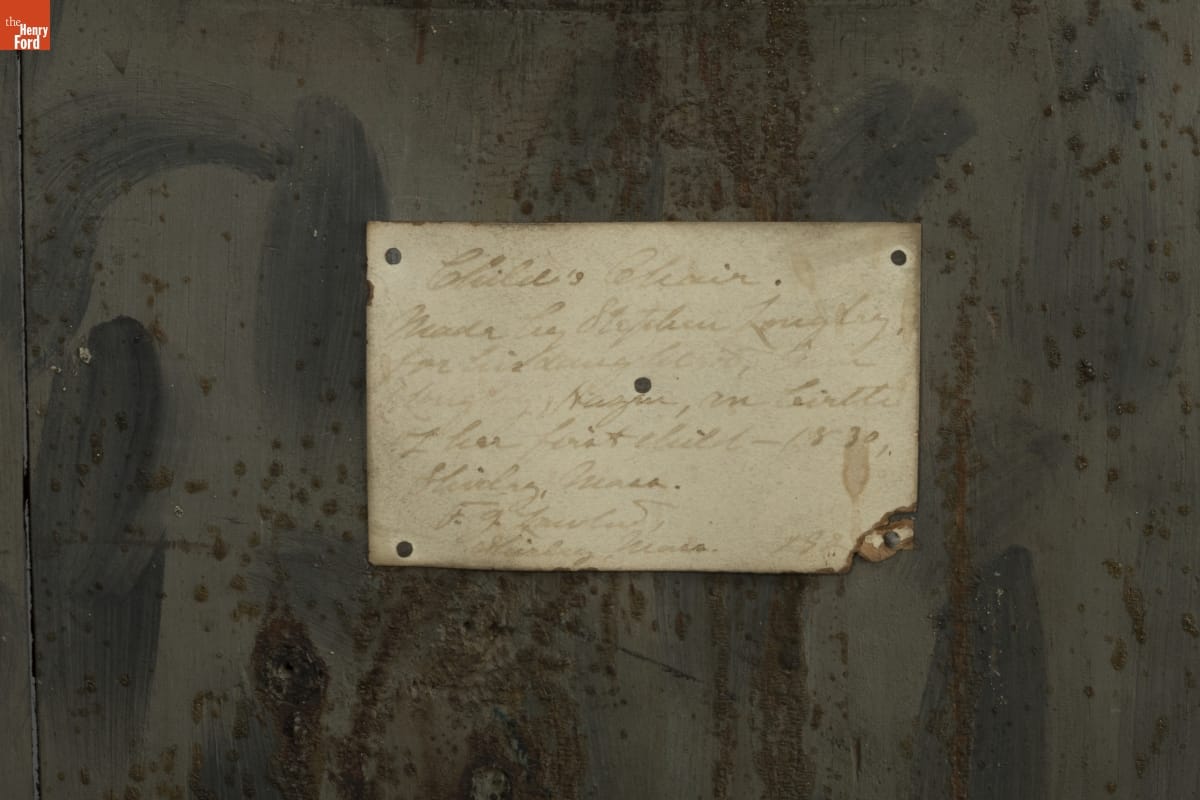 the
Henry
Ford
Child's Chair.
Made by Stephen Longley,
for his daughter,
Harper, on birth
of her first child – 1830,
Shirley, Mass.
Shirley, Mass.